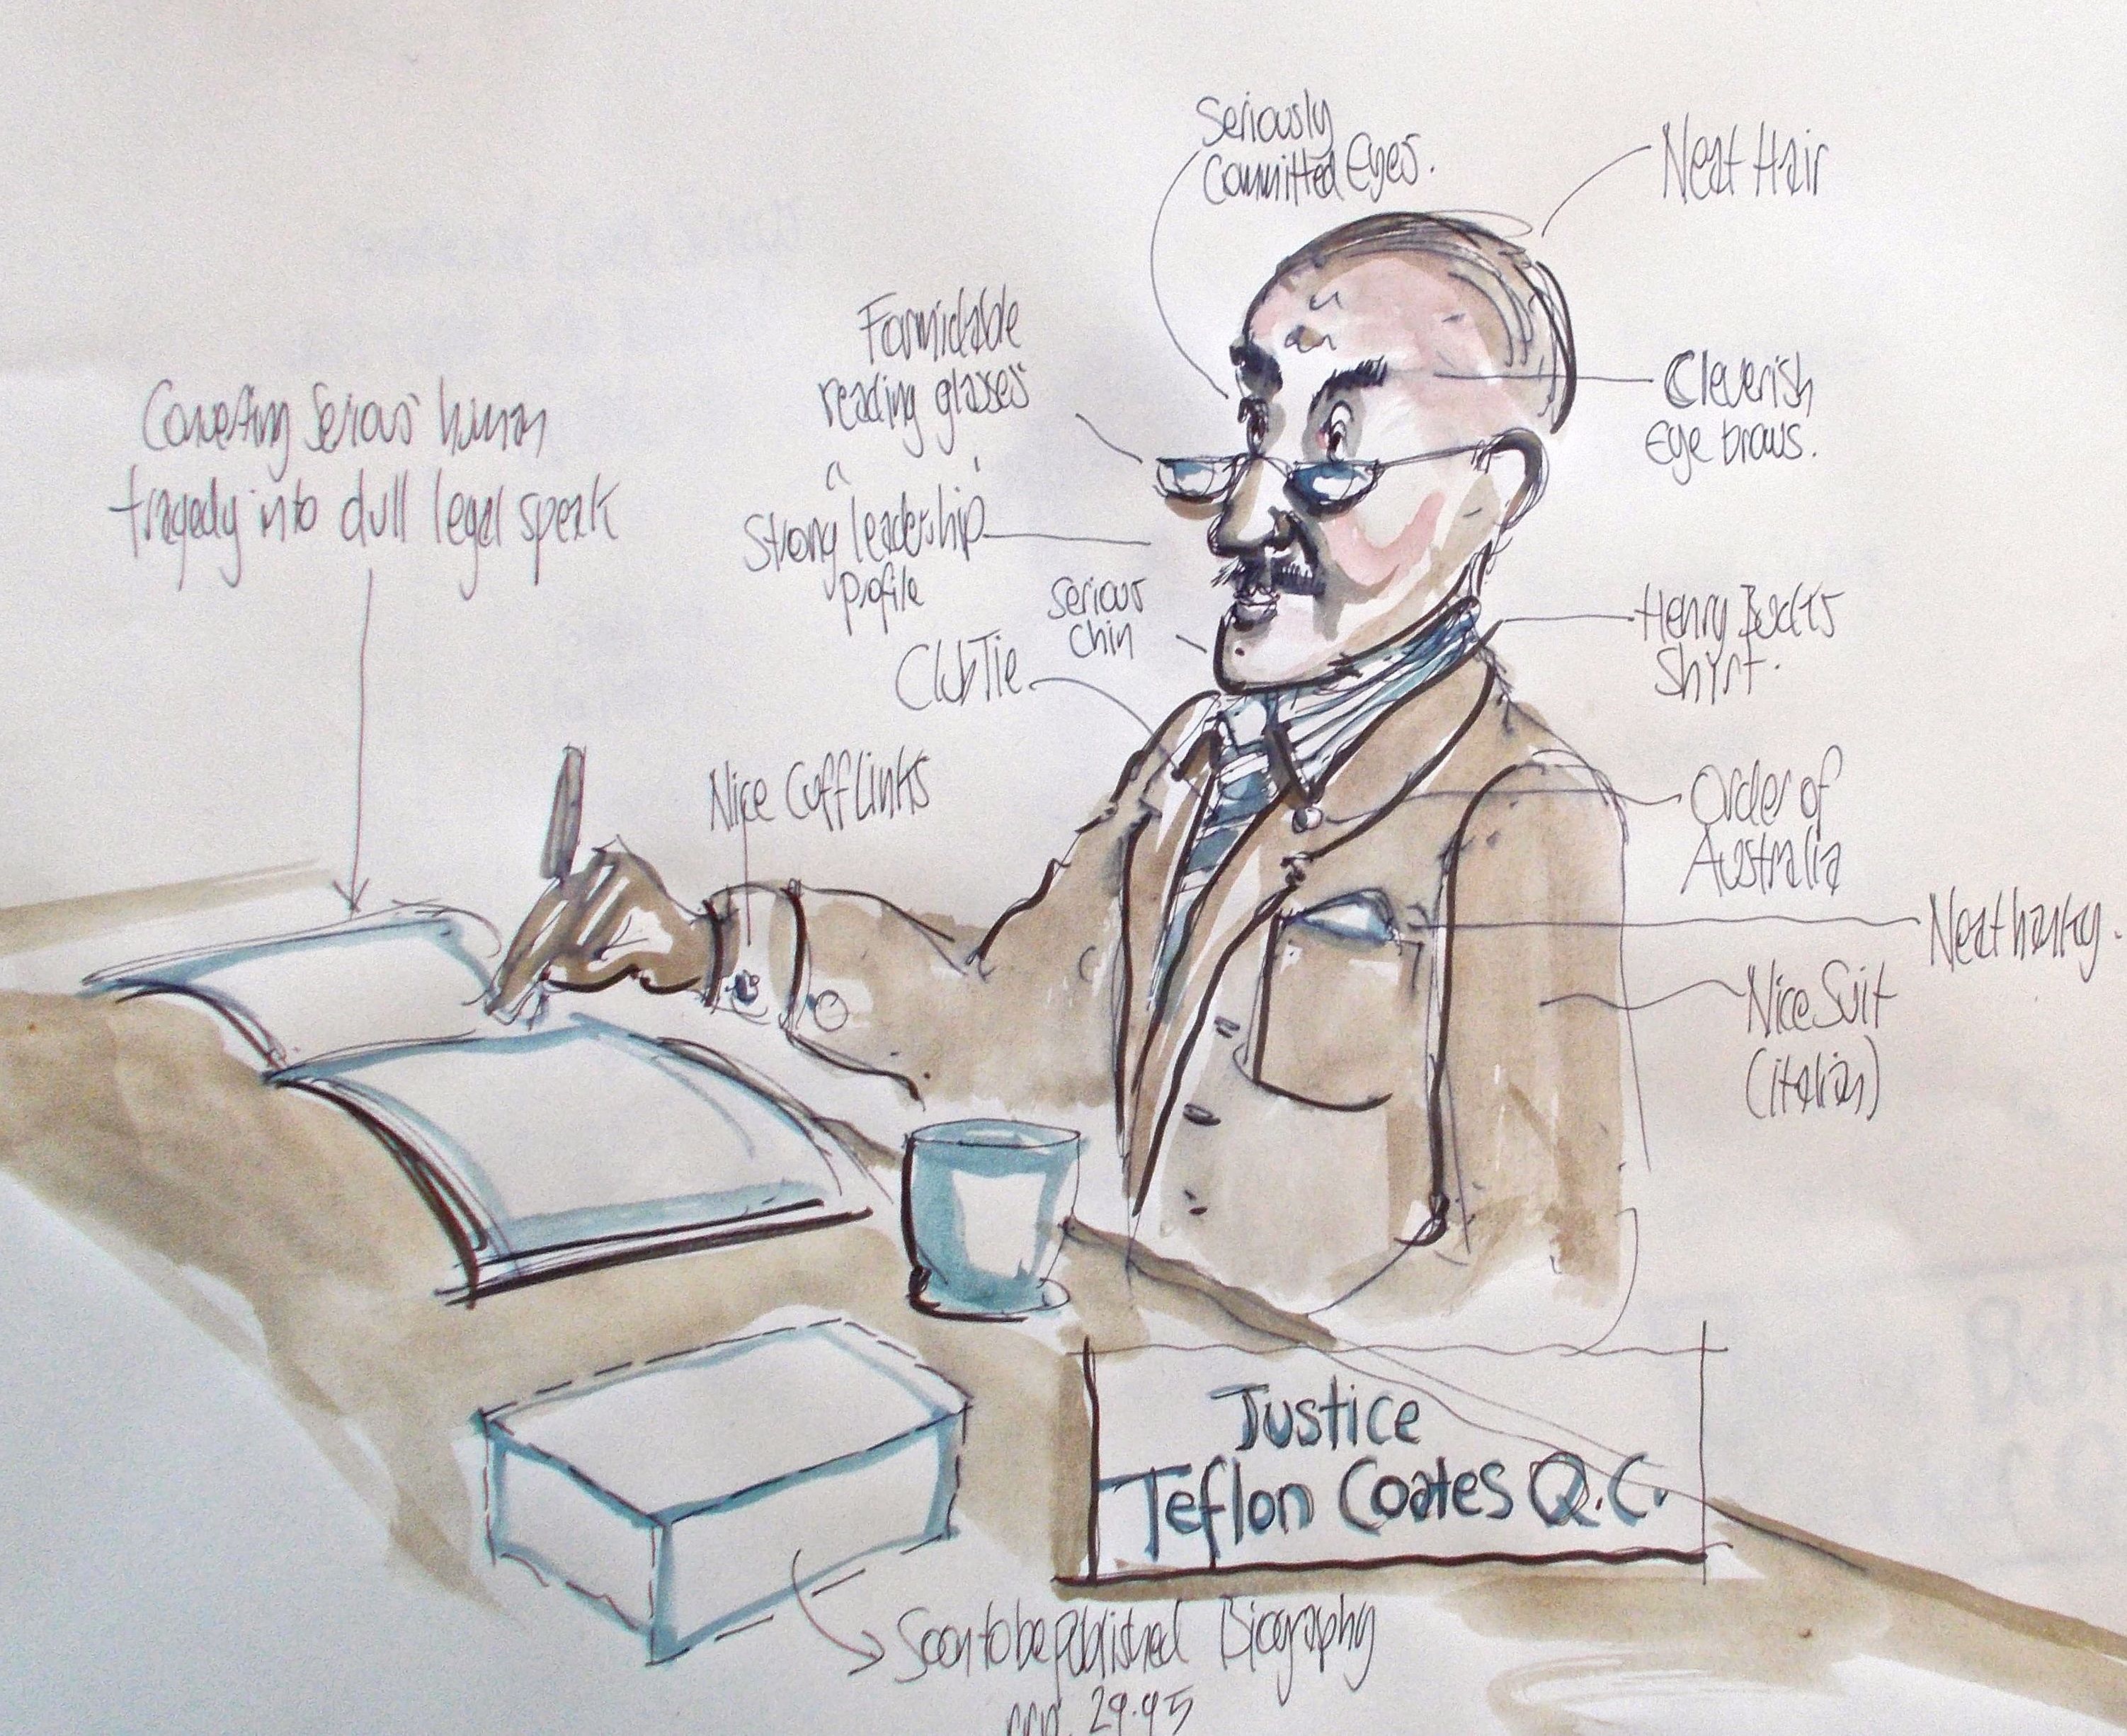 Seriously
Committed Eyes.
Neat Hair
Formidable
reading glasses
Cleverish
Eye brows.
Converting Serious human
tragedy into dull legal speak
Strong leadership
profile
Serious
Chin
Henry Bucks
Shirt.
Club Tie
Nice Cuff Links
Order of
Australia
Neat hanky.
Nice Suit
(italian)
Justice
Teflon Coates Q.C.
Soon to be published Biography
rrp. 29.95